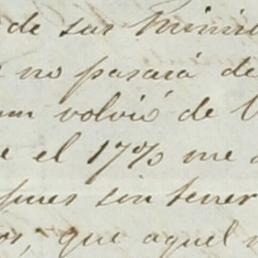 de sus Minis
no pasará de
volvió de
e el 17% me
pues sin tener
os, que aquel